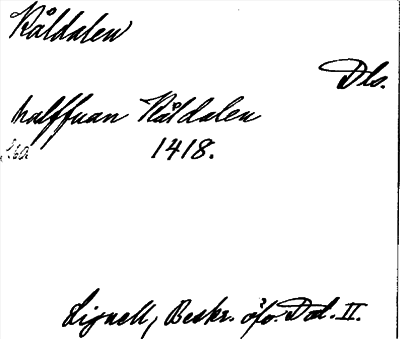 Råldalen
Dls.
halffuan Råldalen
1418.
Lignell, Beskr. öfv. Dal. II.